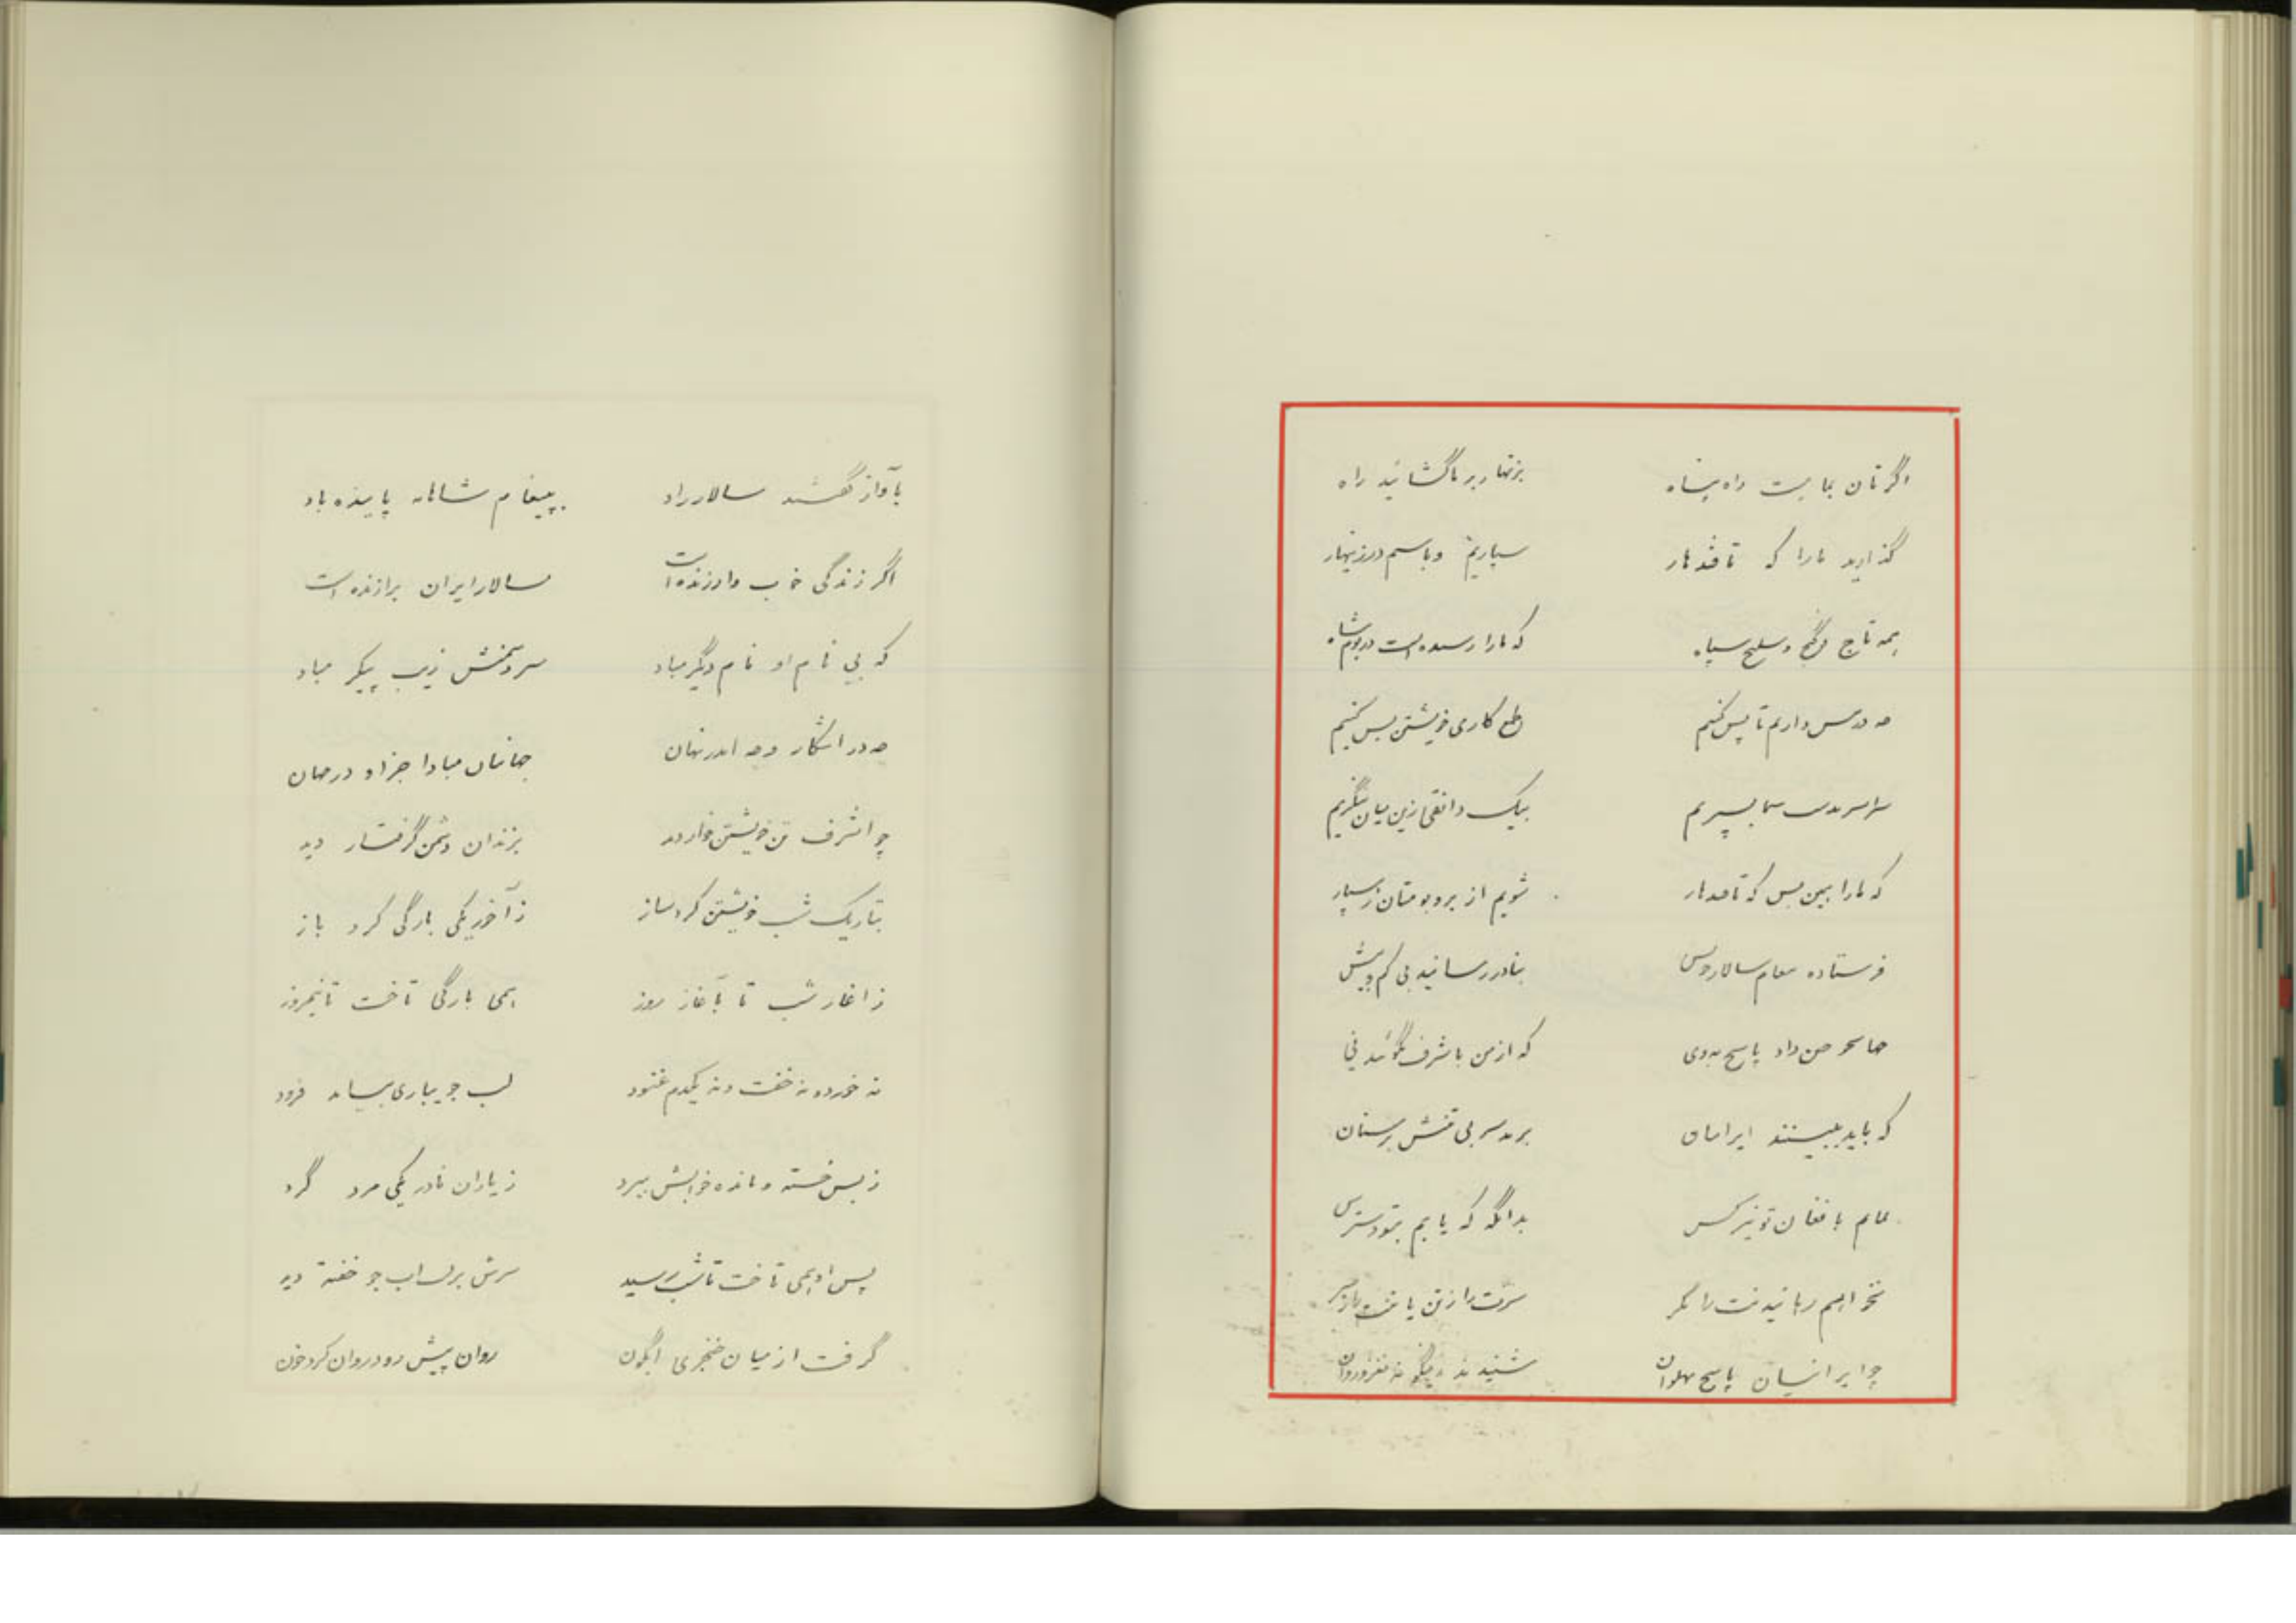 اگرتان بما هست راه پناه بزنهار بر ما گشائید راه
گذارید ما را که تا قندهار سپاریم و باسم در زینهار
همه تاج و گنج و سلیح سپاه که ما را رسیده است در بوم شاه
چه در دست داریم تا پس کنیم کاری خویشتن بس کنیم
سراسر بدست شما بسپریم بیک زین میان ننگریم
که ما را همین بس که تا قندهار شویم از بر و بومتان
فرستاده پیغام سالار خویش بنادر رسانید بی کم و بیش
جهانجو چنین داد پاسخ بدوی که از من باشرف بگوئید نی
که باید ببینند ایرانیان بریده سر بی تنش بر سنان
نمانم بافغان تو نیز کس بدانگه که یابم بتو دسترس
نخواهیم رهانیدنت را مگر سرت را ز تن یا تنت را ز سر
چو ایرانیان پاسخ پهلوان شنیدند نغز و روان
بآواز گفتند سالار راد به پیغام شاهانه پاینده باد
اگر زندگی خوب و ارزنده است سالار ایران برازنده است
که بی نام او نام دیگر مباد سر دشمنش زیب پیکر مباد
چه در آشکار و چه اندر نهان جهانبان مبادا جز او در جهان
چو اشرف تن خویشتن خوار دید بزندان دشمن گرفتار دید
بتاریک شب خویشتن کرد ساز ز آخور یکی بارگی کرد باز
ز آغاز شب تا بآغاز روز همی بارگی تاخت تا نیمروز
نه خورد و نه خفت و نه یکدم غنود لب جویباری بیامد فرود
ز بس خسته و مانده خوابش ببرد ز یاران نادر یکی مرد گرد
پس او همی تاخت تا شب رسید سرش بر لب آب جو خفته دید
گرفت از میان خنجری آبگون روان پیش رود روان کرد خون